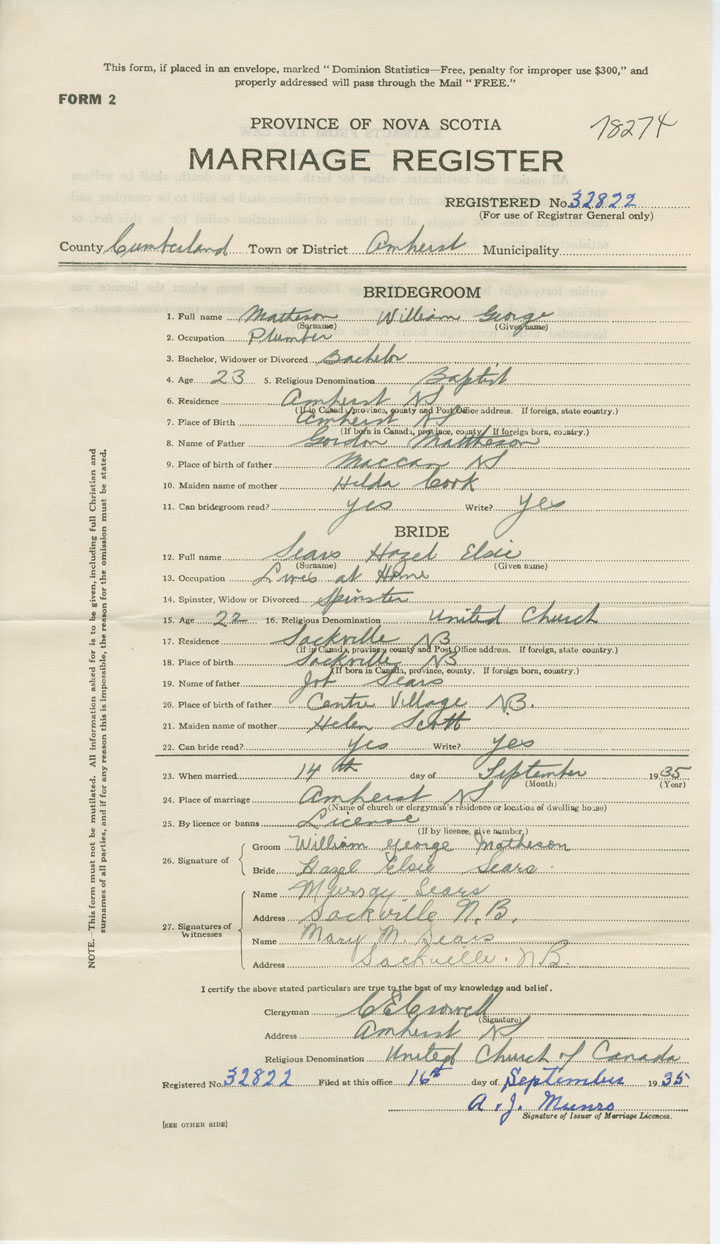 This form, if placed in an envelope, marked "Dominion Statistics—Free, penalty for improper use $300," and
properly addressed will pass through the Mail "FREE."
FORM 2
PROVINCE OF NOVA SCOTIA
78274
MARRIAGE REGISTER
REGISTERED No. 32822
(For use of Registrar General only)
County Cumberland Town or District Amherst Municipality
BRIDEGROOM
1. Full name Matheson William George
(Surname) (Given name)
2. Occupation Plumber
3. Bachelor, Widower or Divorced Bachelor
4. Age 23 5. Religious Denomination Baptist
6. Residence Amherst NS
(If in Canada, province, county and Post Office address. If foreign, state country.)
7. Place of Birth Amherst NS
(If born in Canada, province, county. If foreign born, country.)
8. Name of Father Gordon Mattheson
9. Place of birth of father Maccan NS
10. Maiden name of mother Hilda Cook
11. Can bridegroom read? yes Write? yes
BRIDE
12. Full name Sears Hazel Elsie
(Surname) (Given name)
13. Occupation Lives at Home
14. Spinster, Widow or Divorced Spinster
15. Age 22 16. Religious Denomination United Church
17. Residence Sackville NB
(If in Canada, province county and Post Office address. If foreign, state country.)
18. Place of birth Sackville NB
(If born in Canada, province, county. If foreign born, country.)
19. Name of father Job Sears
20. Place of birth of father Centre Village N.B.
21. Maiden name of mother Helen Scott
22. Can bride read? yes Write? yes
23. When married 14th day of September 1935
(Month) (Year)
24. Place of marriage Amherst NS
(Name of church or clergyman's residence or location of dwelling house)
25. By licence or banns License
(If by licence, give number)
26. Signature of
Groom William George Matheson
Bride Hazel Elsie Sears.
27. Signatures of Witnesses
Name Murray Sears
Address Sackville N.B.
Name Mary M. Sears
Address Sackville. N.B.
I certify the above stated particulars are true to the best of my knowledge and belief.
Clergyman C E Crowell
(Signature)
Address Amherst NS
Religious Denomination United Church of Canada
Registered No. 32822 Filed at this office 16th day of September 1935
A. J. Munro
Signature of Issuer of Marriage Licences.
[SEE OTHER SIDE]
NOTE.—This form must not be mutilated. All information asked for is to be given, including full Christian and
surnames of all parties, and if for any reason this is impossible, the reason for the omission must be stated.